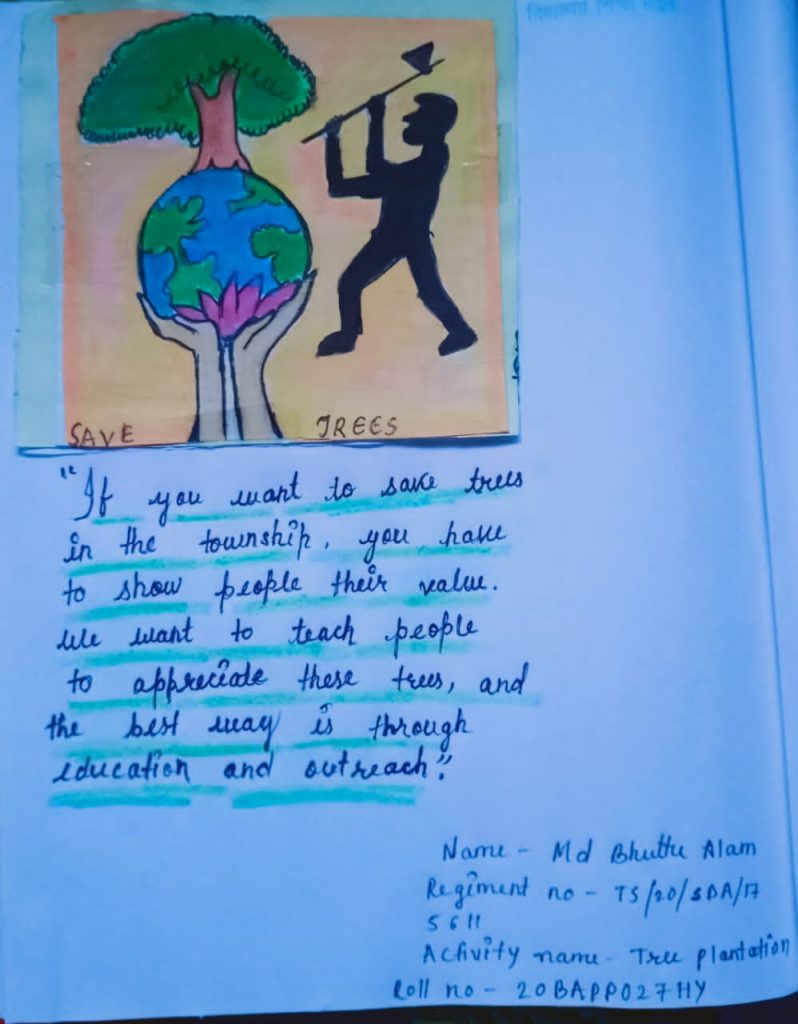 SAVE TREES
"If you want to save trees
in the township, you have
to show people their value.
We want to teach people
to appreciate these trees, and
the best way is through
education and outreach".
Name - Md Bhuttu Alam
Regiment no - TS/20/SDA/17
5611
Activity name - Tree plantation
Roll no - 20BAPP027HY